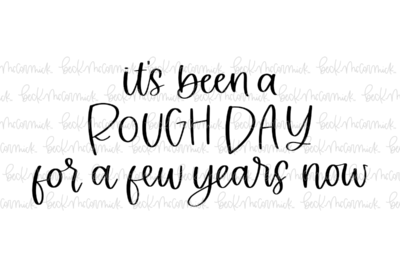 it's been a
ROUGH DAY
for a few years now